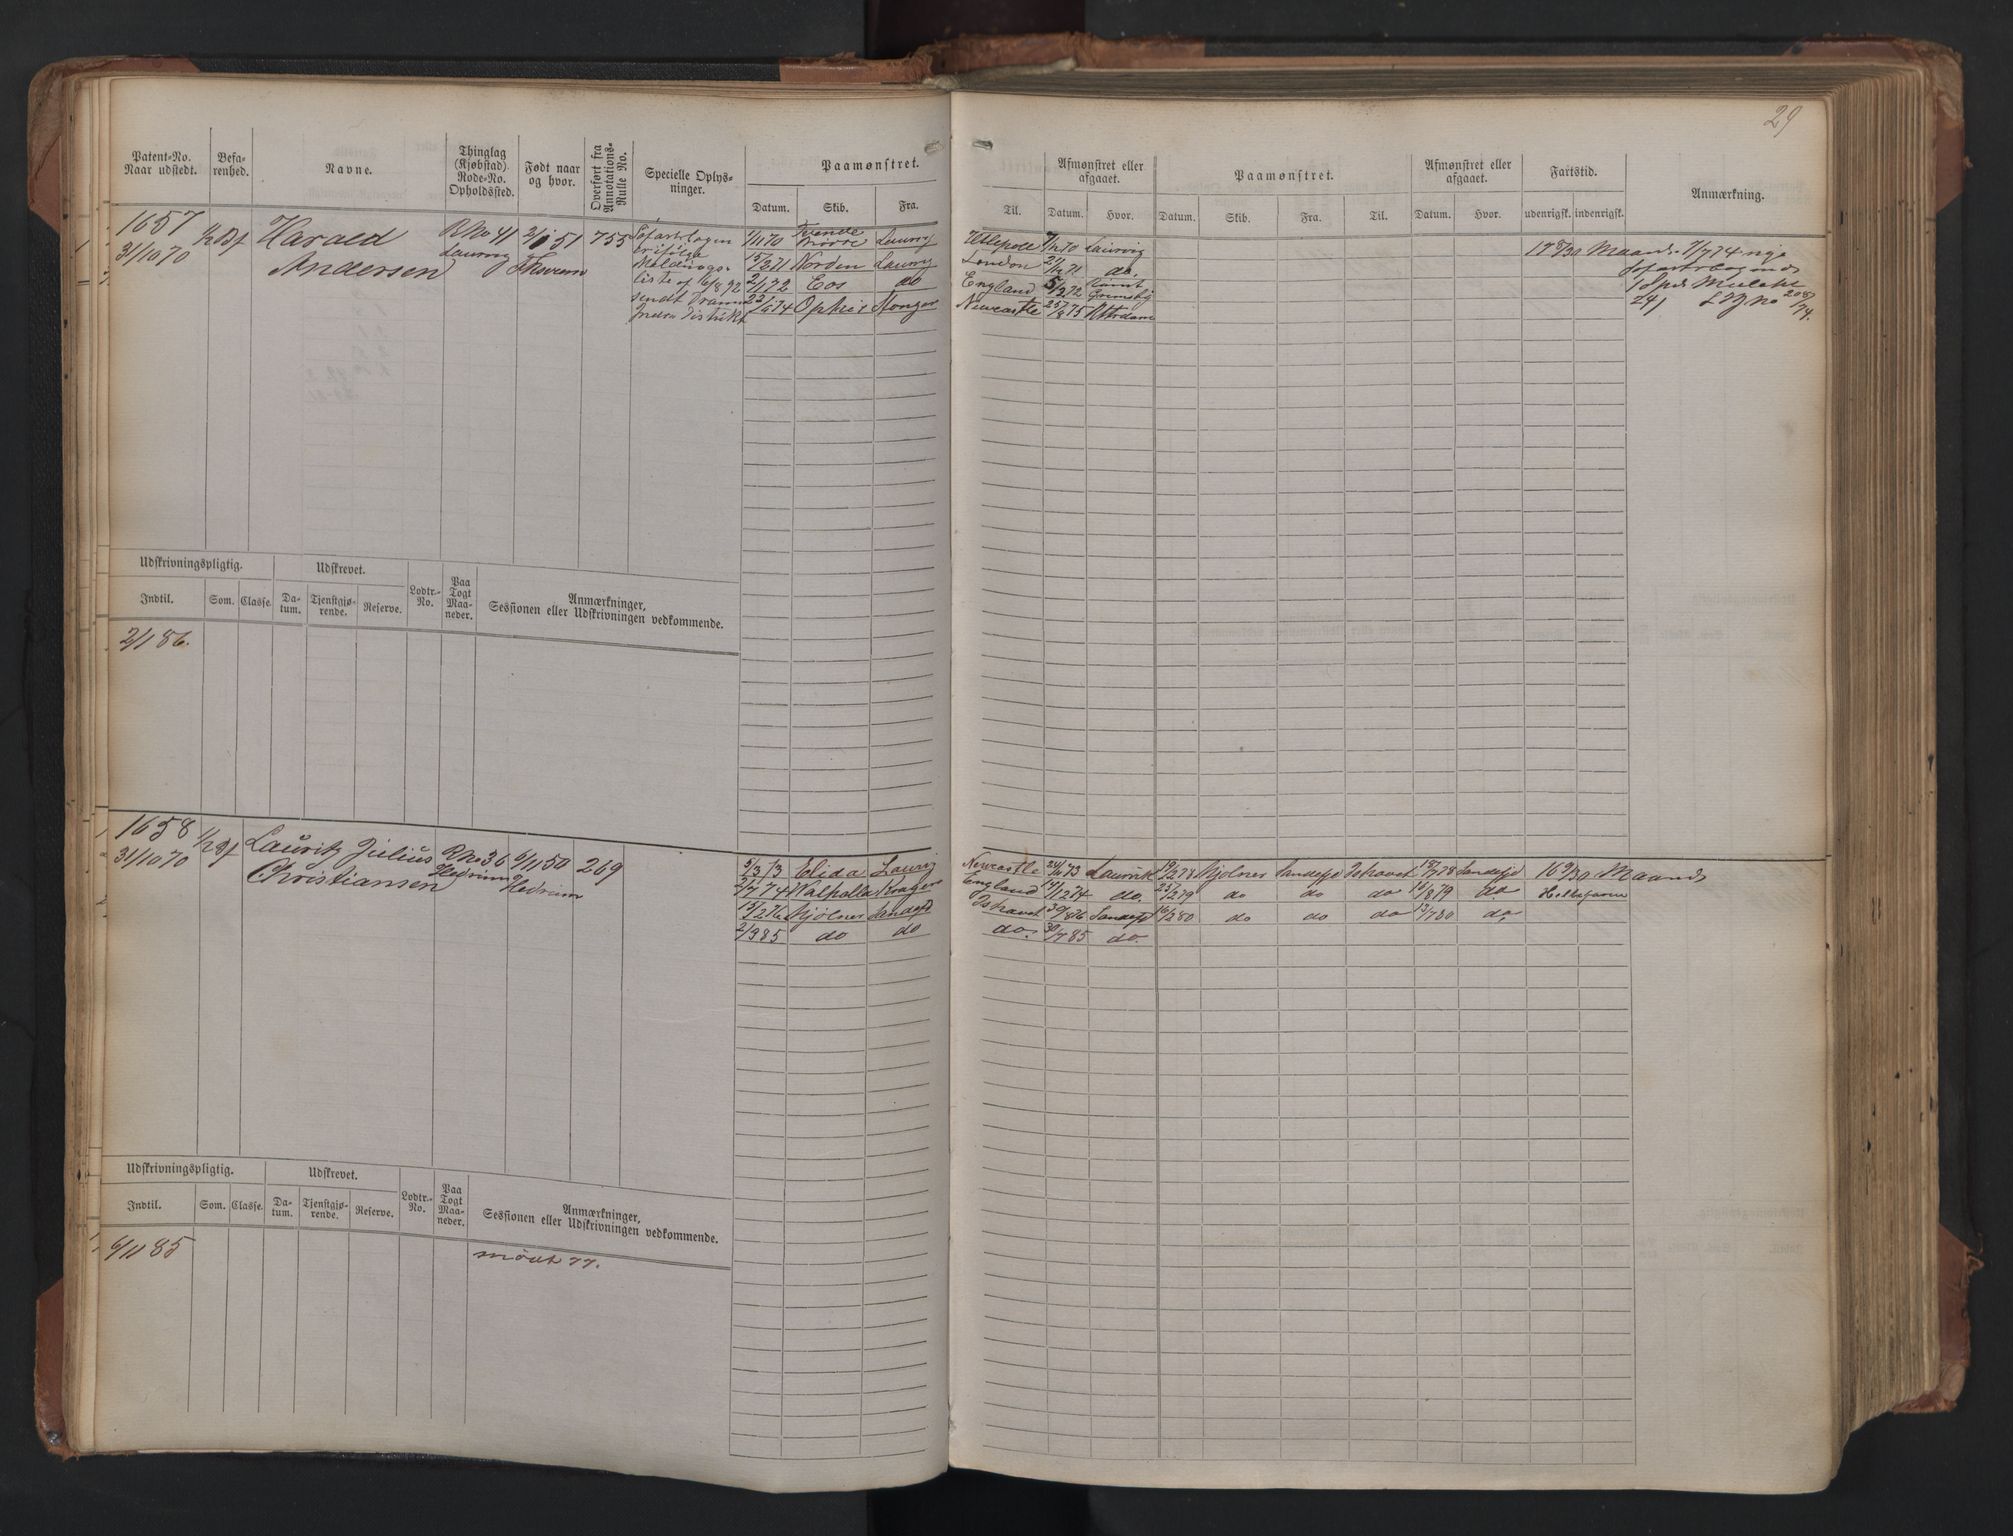 29
Patent-No. Naar udstedt.
Befarenhed.
Navne.
Thinglag (Kjøbstad). Rode-No. Opholdssted.
Født naar og hvor.
Overført fra Annotations-Rulle No.
Specielle Oplysninger.
Paamønstret.
Datum. Skib. Fra. Til.
Afmønstret eller afgaaet.
Datum. Hvor.
Paamønstret.
Datum. Skib. Fra. Til.
Afmønstret eller afgaaet.
Datum. Hvor.
Fartstid.
udenrigsk. indenrigsk.
Anmærkning.
1657
31/10 70
1/2 Bf
Harald
Andersen
RNo 41
Laurvig
2/1 51
755
Søfartsbogen
ifølge
Meldings-
liste af 6/8 92
sendt Dram-
mens Distrikt
1/11 70 Laurvig
15/2 71 Norden Laurvig London 21/11 71 do.
2/1 72 Eos do England
Ophir Newcastle 25/8 75
Maand. 7/7 74 nye
1 Spd
241
Udskrivningspligtig. Udskrevet. Lodtr.-No. Paa Togt Maaneder. Anmærkninger, Sessionen eller Udskrivningen vedkommende.
Indtil. Som. Classe. Datum. Tjenstgjørende. Reserve.
2/1 86.
1658
31/10 70
1/2 Bf
Lauritz Julius
Christiansen
RNo 36
Hedrum
6/11 50
Hedrum
269
5/3 73 Elida Laurvig Newcastle 24/11 73 Laurvik 19/2 78 Mjølner Sandefjd Ishavet 18/7 78 Sandefjd 16 9/30 Maaned
2/7 74 Valhalla Kragerø England 14/12 74 do. 25/2 79 do do do 16/8 79 do.
15/2 76 Mjølner Sandefjd Ishavet 30/8 76 Sandefjd 16/2 80 do do do 13/7 80 do.
2/3 85 do do do. 30/7 85 do.
Udskrivningspligtig. Udskrevet. Lodtr.-No. Paa Togt Maaneder. Anmærkninger, Sessionen eller Udskrivningen vedkommende.
Indtil. Som. Classe. Datum. Tjenstgjørende. Reserve.
6/11 85
mødt 77.